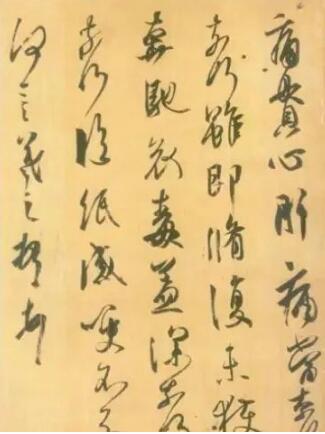 痛貫心肝痛當奈
奈何雖即脩復未獲
奔馳哀毒益深奈何
奈何臨紙感哽不知
何言羲之頓首